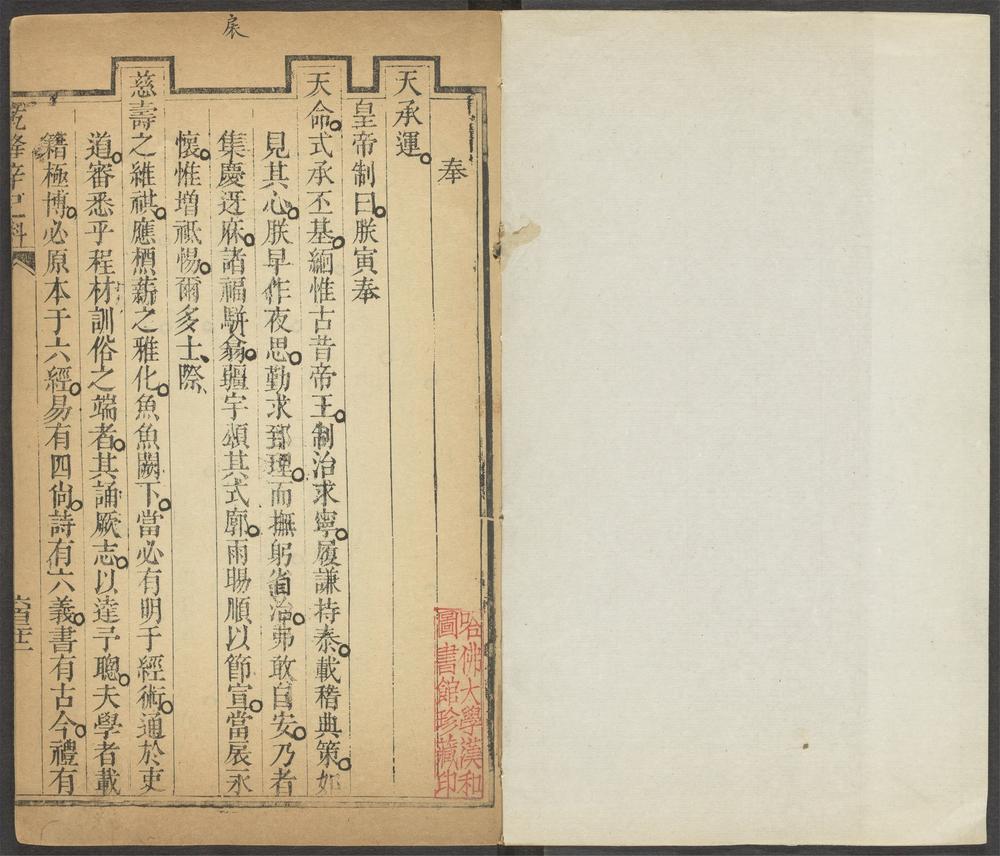 奉
天承運
皇帝制曰朕寅奉
天命式承丕基緬惟古昔帝王制治求寧履謙持泰載稽典策如
見其心朕早作夜思勤求郅理而撫躬省治弗敢自安乃者
集慶迓庥諸福駢翕疆宇頌其式廓雨暘順以節宣當扆永
懷惟增祗惕爾多士際
慈壽之維祺應槱薪之雅化魚魚闕下當必有明于經術通於吏
道審悉乎程材訓俗之端者其誦厥志以達予聰夫學者載
籍極博必原本于六經易有四尙詩有六義書有古今禮有
乾隆辛巳科
哈佛大學漢和
圖書館珍藏印